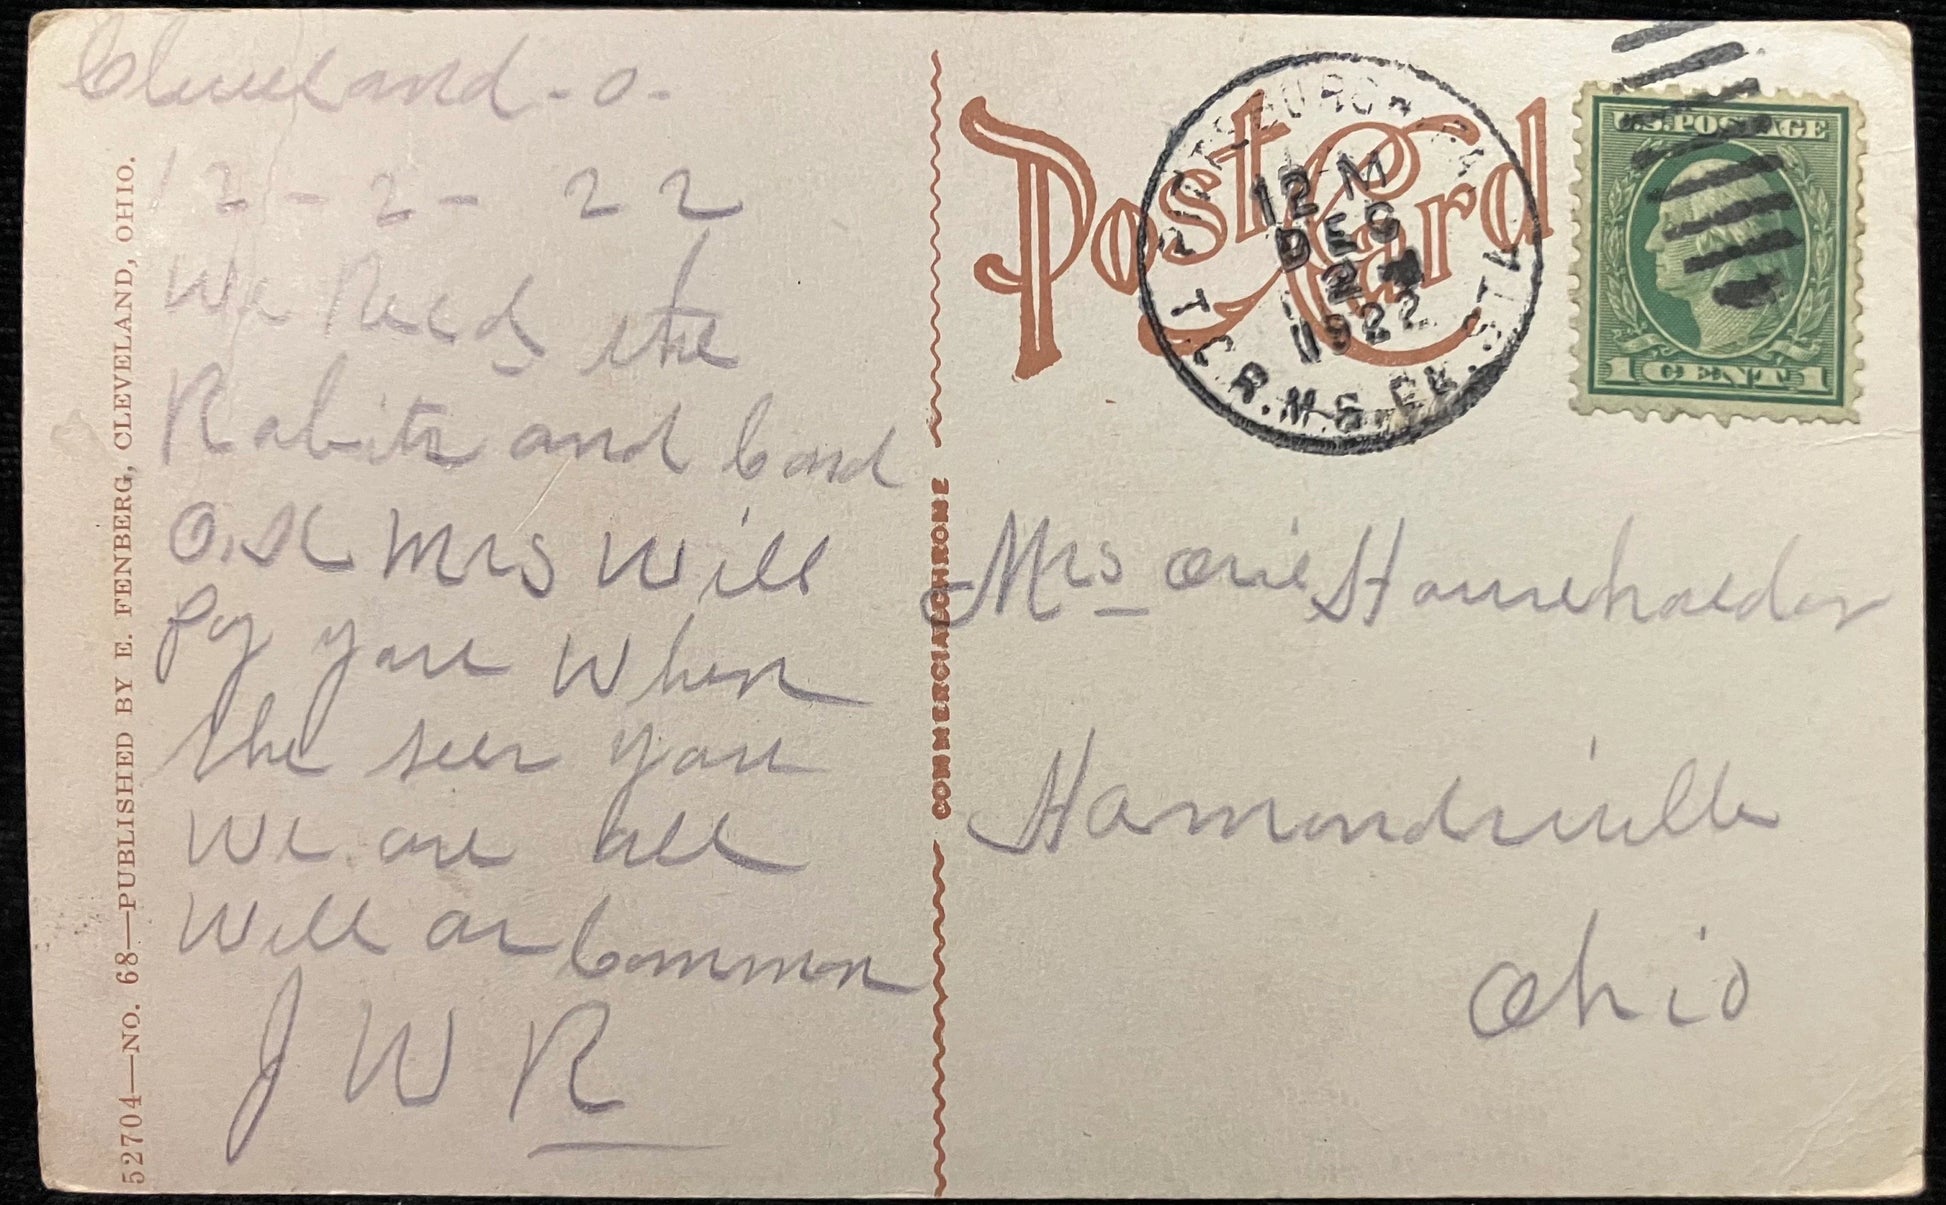 Cleveland - O -
12 - 2 - 22
We Recd the
Rabits and Card
O.K Mrs Will
Pay you When
She sees you
We are all
Well as Common
J W R
52704—NO. 68—PUBLISHED BY E. FENBERG, CLEVELAND, OHIO.
COMMERCIALCHROME
Post Card
12 M
DEC
2
1922
R.M.S.
U.S. POSTAGE
1 CENT 1
Mrs Orie Householder
Hamondsville
Ohio